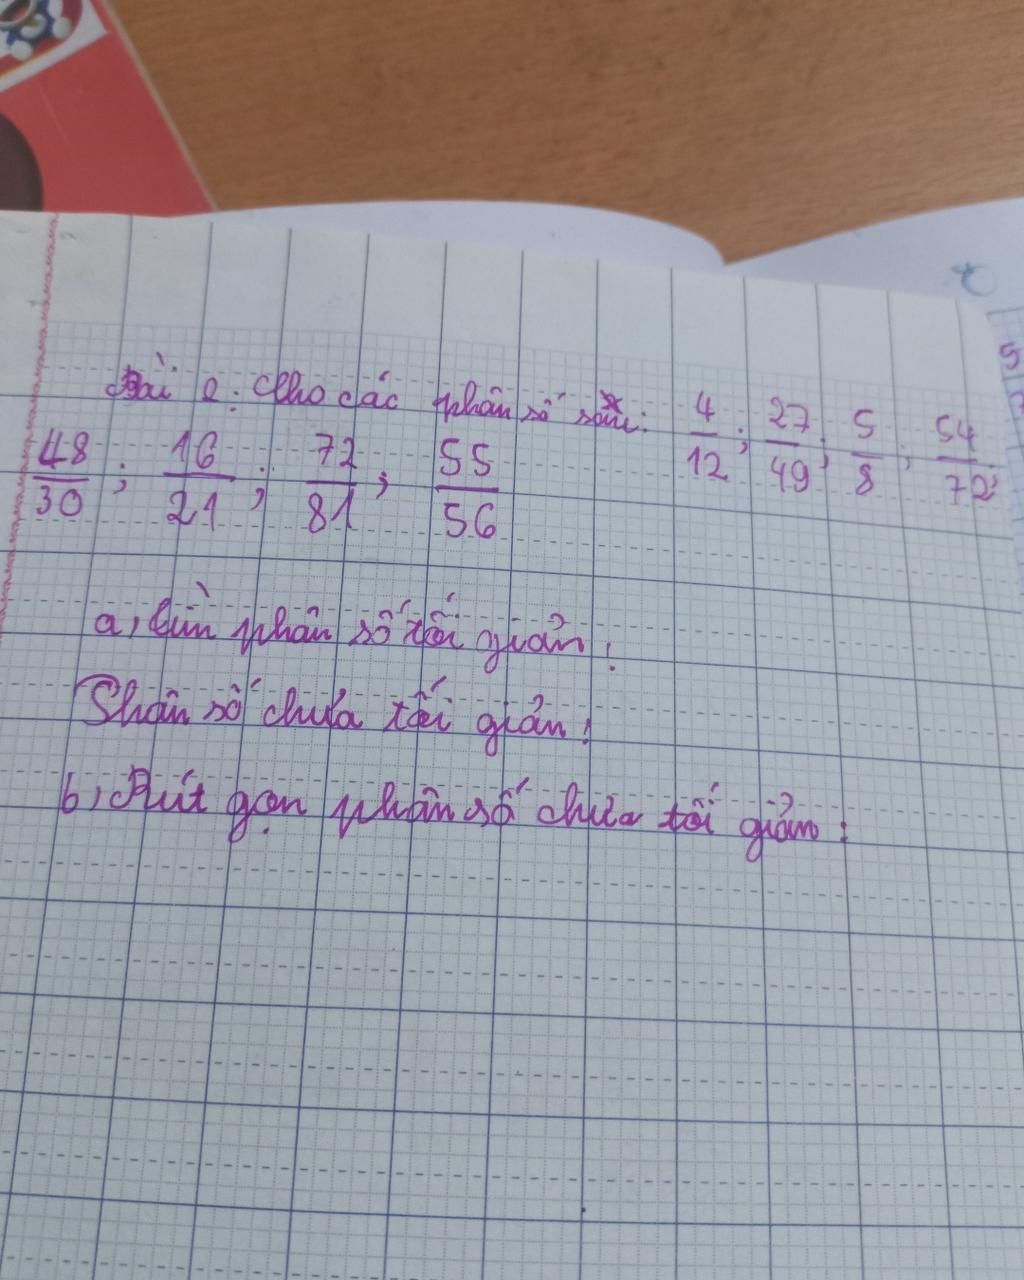 Bài 2: Cho các phân số sau: 4/12; 27/49; 5/8; 54/72;
48/30; 16/21; 72/81; 55/56
a, Tìm phân số tối giản:
Phân số chưa tối giản:
b, Rút gọn phân số chưa tối giản: